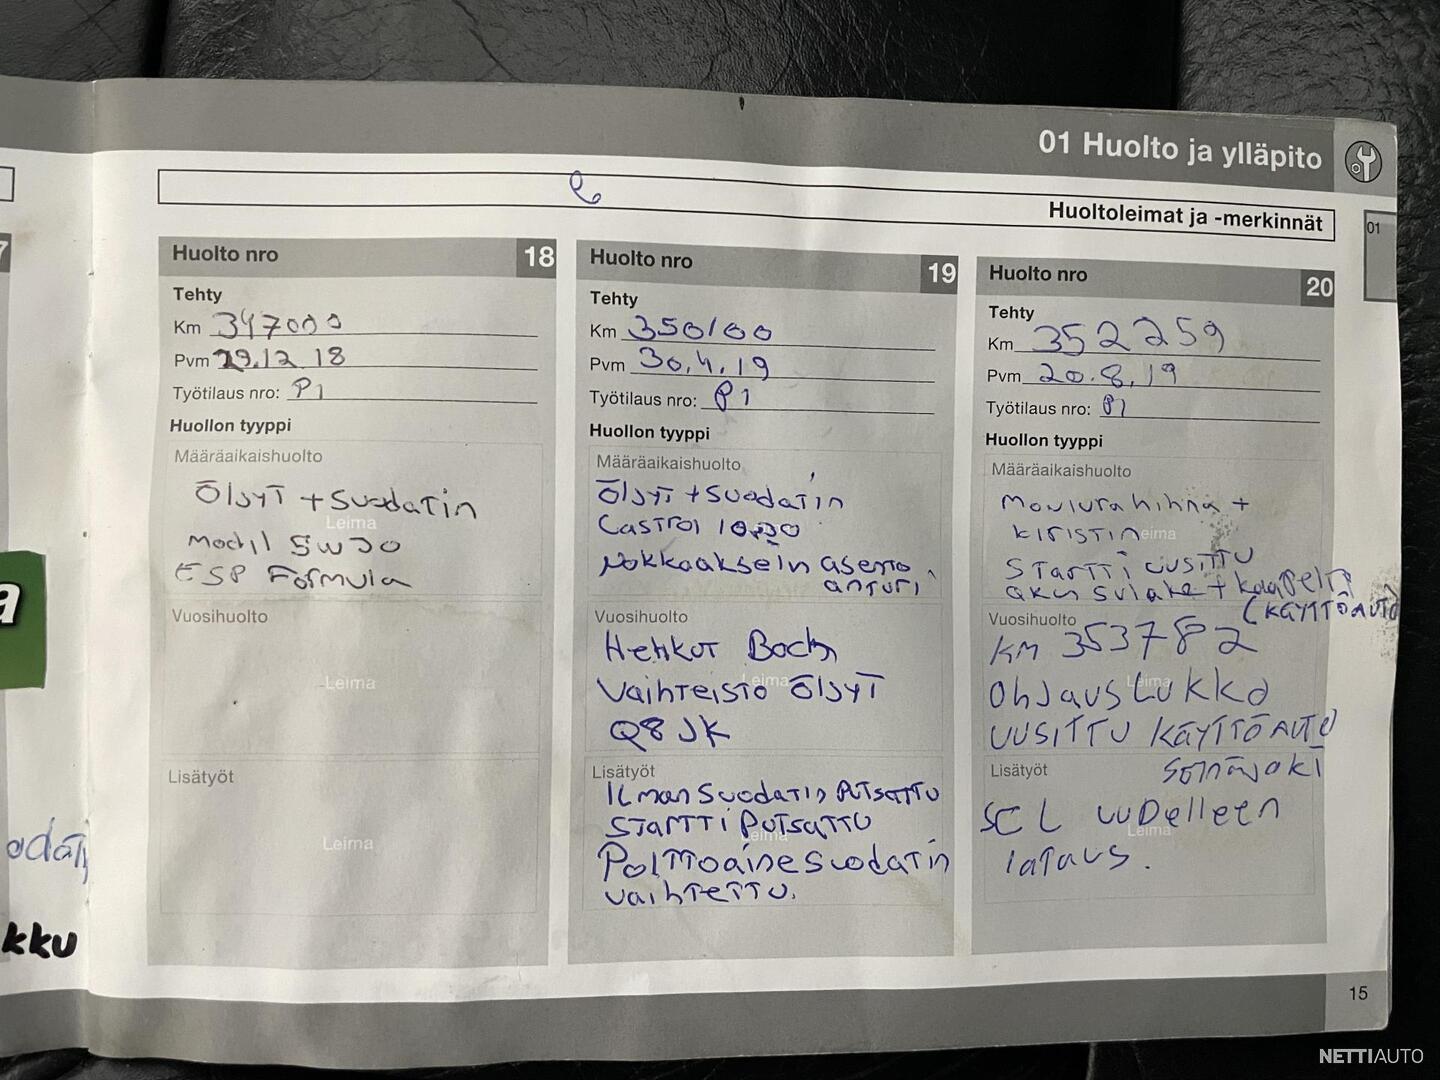 01 Huolto ja ylläpito
Huoltoleimat ja -merkinnät
01
7
a
kku
Huolto nro 18
Tehty
Km 347000
Pvm 29.12 18
Työtilaus nro: P1
Huollon tyyppi
Määräaikaishuolto
ÖljyT + Suodatin
Leima
Mobil 5W30
ESP Formula
Vuosihuolto
Leima
Lisätyöt
Leima
Huolto nro 19
Tehty
Km 350100
Pvm 30.4.19
Työtilaus nro: P1
Huollon tyyppi
Määräaikaishuolto
ÖljyT + Suodatin
Castrol
Nokkaakselin asento
anturi
Vuosihuolto
Hehkut Boch
Leima
Vaihteisto ÖljyT
Q8 JK
Lisätyöt
Ilman Suodatin Putsattu
Startti Putsattu
Leima
Polttoaine Suodatin
vaihtettu.
Huolto nro 20
Tehty
Km 352259
Pvm 20.8.19
Työtilaus nro: P1
Huollon tyyppi
Määräaikaishuolto
Moniurahihna +
kiristin
Leima
Startti uusittu
akun sulake + kaapelit
(KÄYTTÖAUTO
Vuosihuolto
KM 353782
Leima
Ohjauslukko
uusittu KÄYTTÖAUTO
Seinäjoki
Lisätyöt
SCL uudelleen
Leima
lataus.
15
NETTIAUTO